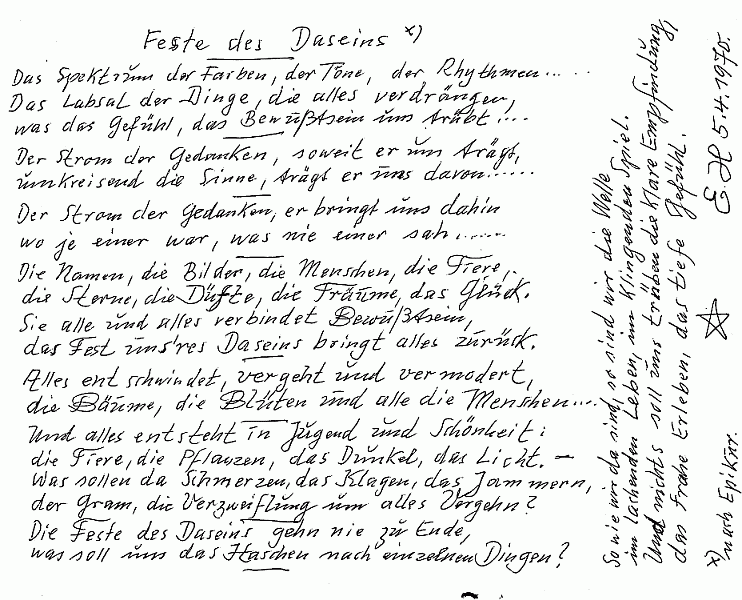 Feste des Daseins x)
Das Spektrum der Farben, der Töne, der Rhythmen.....
Das Labsal der Dinge, die alles verdrängen,
was das Gefühl, das Bewußtsein uns trübt!...
Der Strom der Gedanken, soweit er uns trägt,
umkreisend die Sinne, trägt er uns davon......
Der Strom der Gedanken, er bringt uns dahin
wo je einer war, was nie einer sah......
Die Namen, die Bilder, die Menschen, die Tiere,
die Sterne, die Düfte, die Träume, das Glück.
Sie alle und alles verbindet Bewußtsein,
das Fest uns'res Daseins bringt alles zurück.
Alles entschwindet, vergeht und vermodert,
die Bäume, die Blüten und alle die Menschen...
Und alles entsteht in Jugend und Schönheit:
die Tiere, die Pflanzen, das Dunkel, das Licht. –
Was sollen da Schmerzen, das Klagen, das Jammern,
der Gram, die Verzweiflung um alles Vergehn?
Die Feste des Daseins gehn nie zu Ende,
was soll uns das Haschen nach einzelnen Dingen?
So wie wir da sind, so sind wir die Welle
im lachenden Leben, im klingenden Spiel.
Und nichts soll uns trüben die klare Empfindung,
das frohe Erleben, das tiefe Gefühl.
x) nach Epikur.
E. H 5.4.1970.